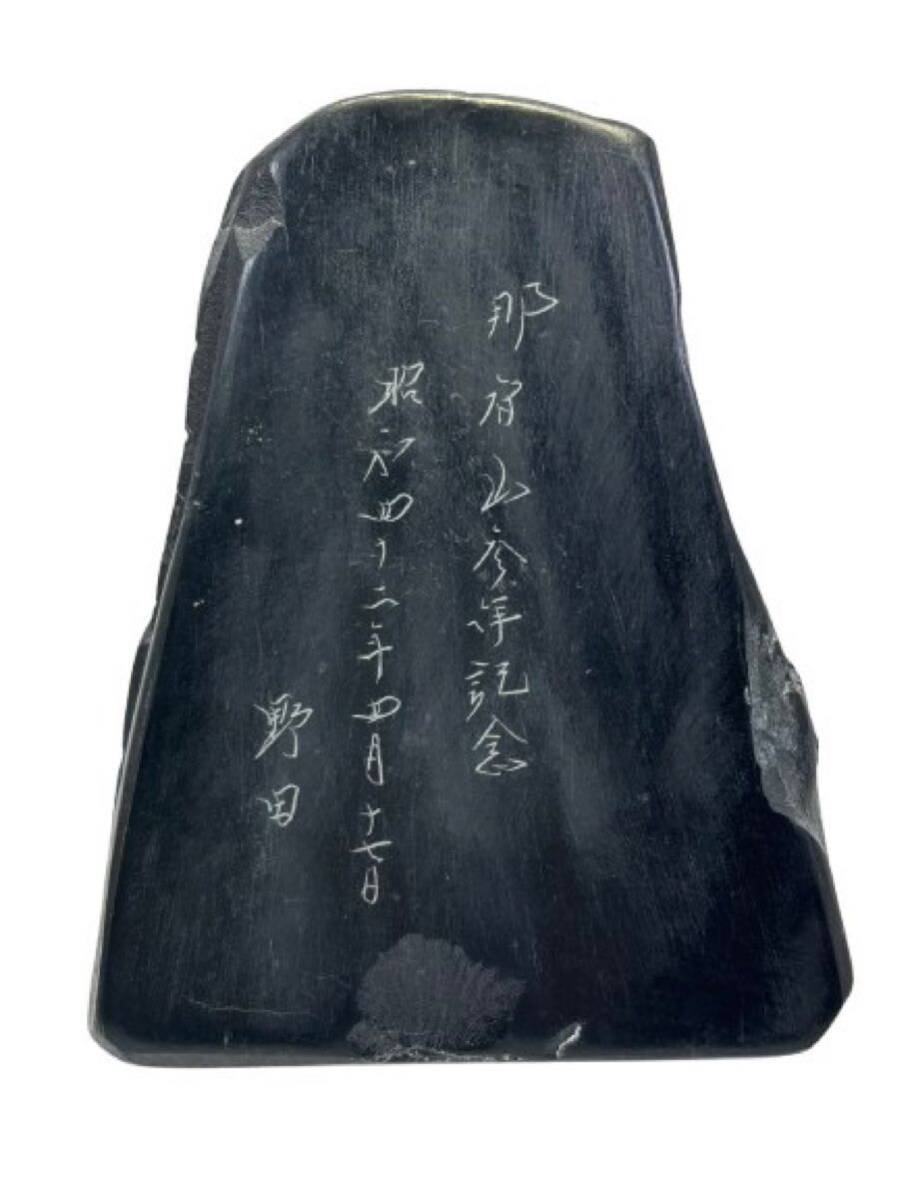 那智山参拝記念
昭和四十二年四月十七日
野田